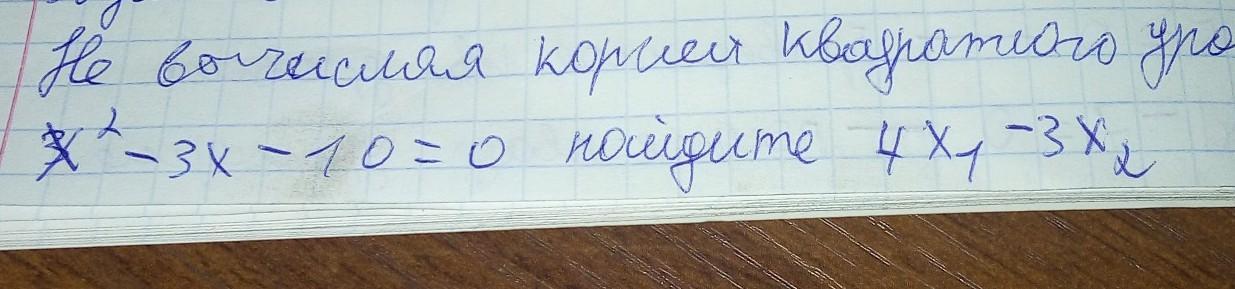 Не вычисляя корней квадратного ура
x² - 3x - 10 = 0 найдите 4x₁ - 3x₂